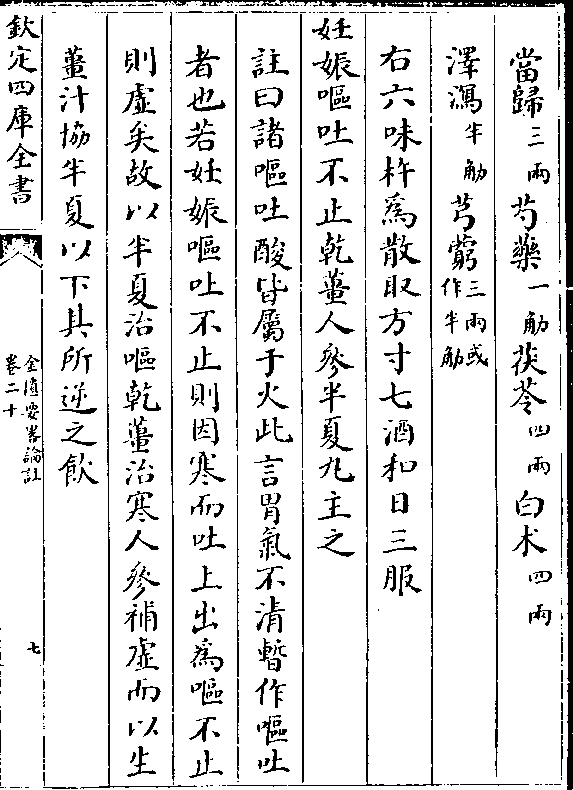 當歸三兩芍藥一觔茯苓四兩白术四兩
澤瀉半觔芎藭三兩或作半觔
右六味杵為散取方寸七酒和日三服
妊娠嘔吐不止乾薑人參半夏丸主之
註曰諸嘔吐酸皆屬于火此言胃氣不清暫作嘔吐
者也若妊娠嘔吐不止則因寒而吐上出為嘔不止
則虛矣故以半夏治嘔乾薑治寒人參補虛而以生
薑汁協半夏以下其所逆之飲
欽定四庫全書
金匱要畧論註
卷二十
七